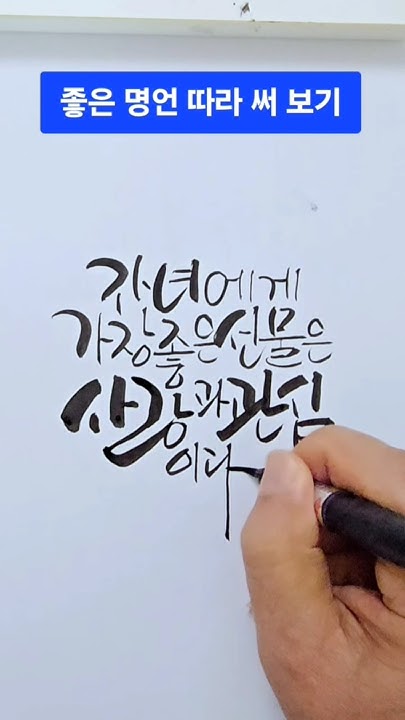 좋은 명언 따라 써 보기
자녀에게
가장좋은선물은
사랑과관심
이다